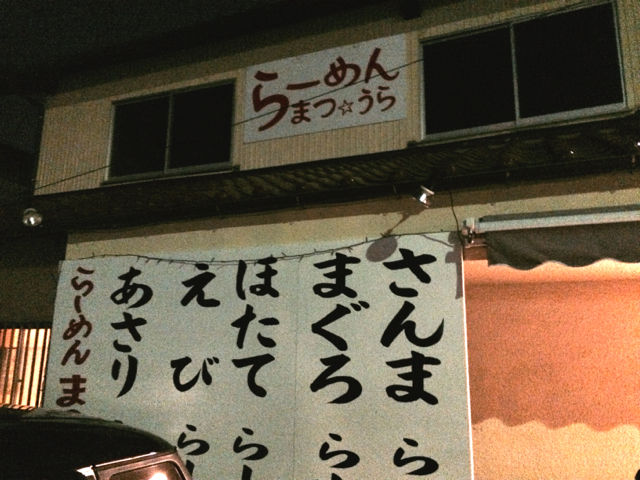 らーめん
まつ☆うら
さんま ら
まぐろ らー
ほたて らー
えび らー
あさり
らーめん ま